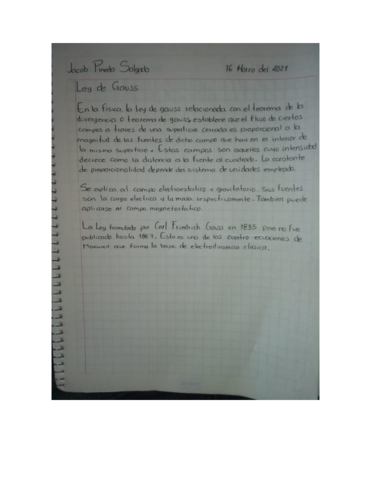 Jacob Pineda Salgado 16 Marzo del 2021
Ley de Gauss
En la física, la ley de gauss relacionada con el teorema de la
divergencia o teorema de gauss, establece que el flujo de ciertos
campos a través de una superficie cerrada es proporcional a la
magnitud de las fuentes de dicho campo que hay en el interior de
la misma superficie. Estos campos son aquellos cuya intensidad
decrece como la distancia a la fuente al cuadrado. La constante
de proporcionalidad depende del sistema de unidades empleado.
Se aplica al campo electrostático y gravitatorio. Sus fuentes
son la carga eléctrica y la masa, respectivamente. También puede
aplicarse al campo magnetostático.
La Ley formulada por Carl Friedrich Gauss en 1835 pero no fue
publicado hasta 1867. Esta es una de las cuatro ecuaciones de
Maxwell que forma la base de electrodinámica clásica.